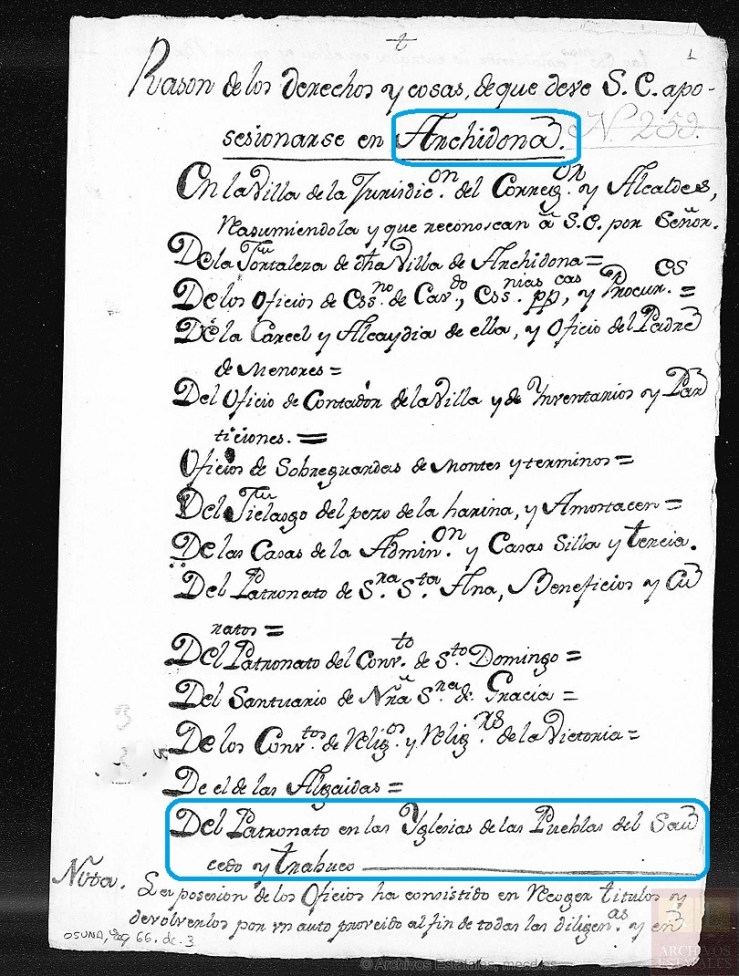 t
1
Rason de los derechos y cosas, de que deve S. C. apo-
sesionarse en Archidona. N. 259.
En la Villa de la Jurisdic.on del Correg.or y Alcaldes,
Reasumiendola y que reconoscan â S. C. por Señor.
De la Fortaleza de dha Villa de Archidona=
De los Oficios de Ess.no de Cav.do, Ess.nias pp.cas, y Procur.es =
De la Carcel y Alcaydia de ella, y Oficio del Padre
de Menores=
Del Oficio de Contador de la Villa y de Inventarios y Par
ticiones. =
Oficios de Sobreguardas de Montes y terminos=
Del del pezo de la harina, y Amotacen=
De las Casas de la Admin.on y Casas Silla y tercia.
Del Patronato de S.ra S.ta Ana, Beneficios y Cu
ratos =
Del Patronato del Conv.to de S.to Domingo =
Del Santuario de Nrâ S.ra de Gracia =
De los Conv.tos de Relig.os y Relig.as de la Victoria=
De el de las Algaidas=
Del Patronato en las Yglesias de las Pueblas del Sau
cedo y trabuco
Nota. La posesion de los Oficios ha consistido en Recoger titulos y
devolverlos por vn auto proveido al fin de todas las diligen.as y en
OSUNA, leg 66. dc. 3
© Archivos Estatales, mecd.es
ARCHIVOS
ESTATALES